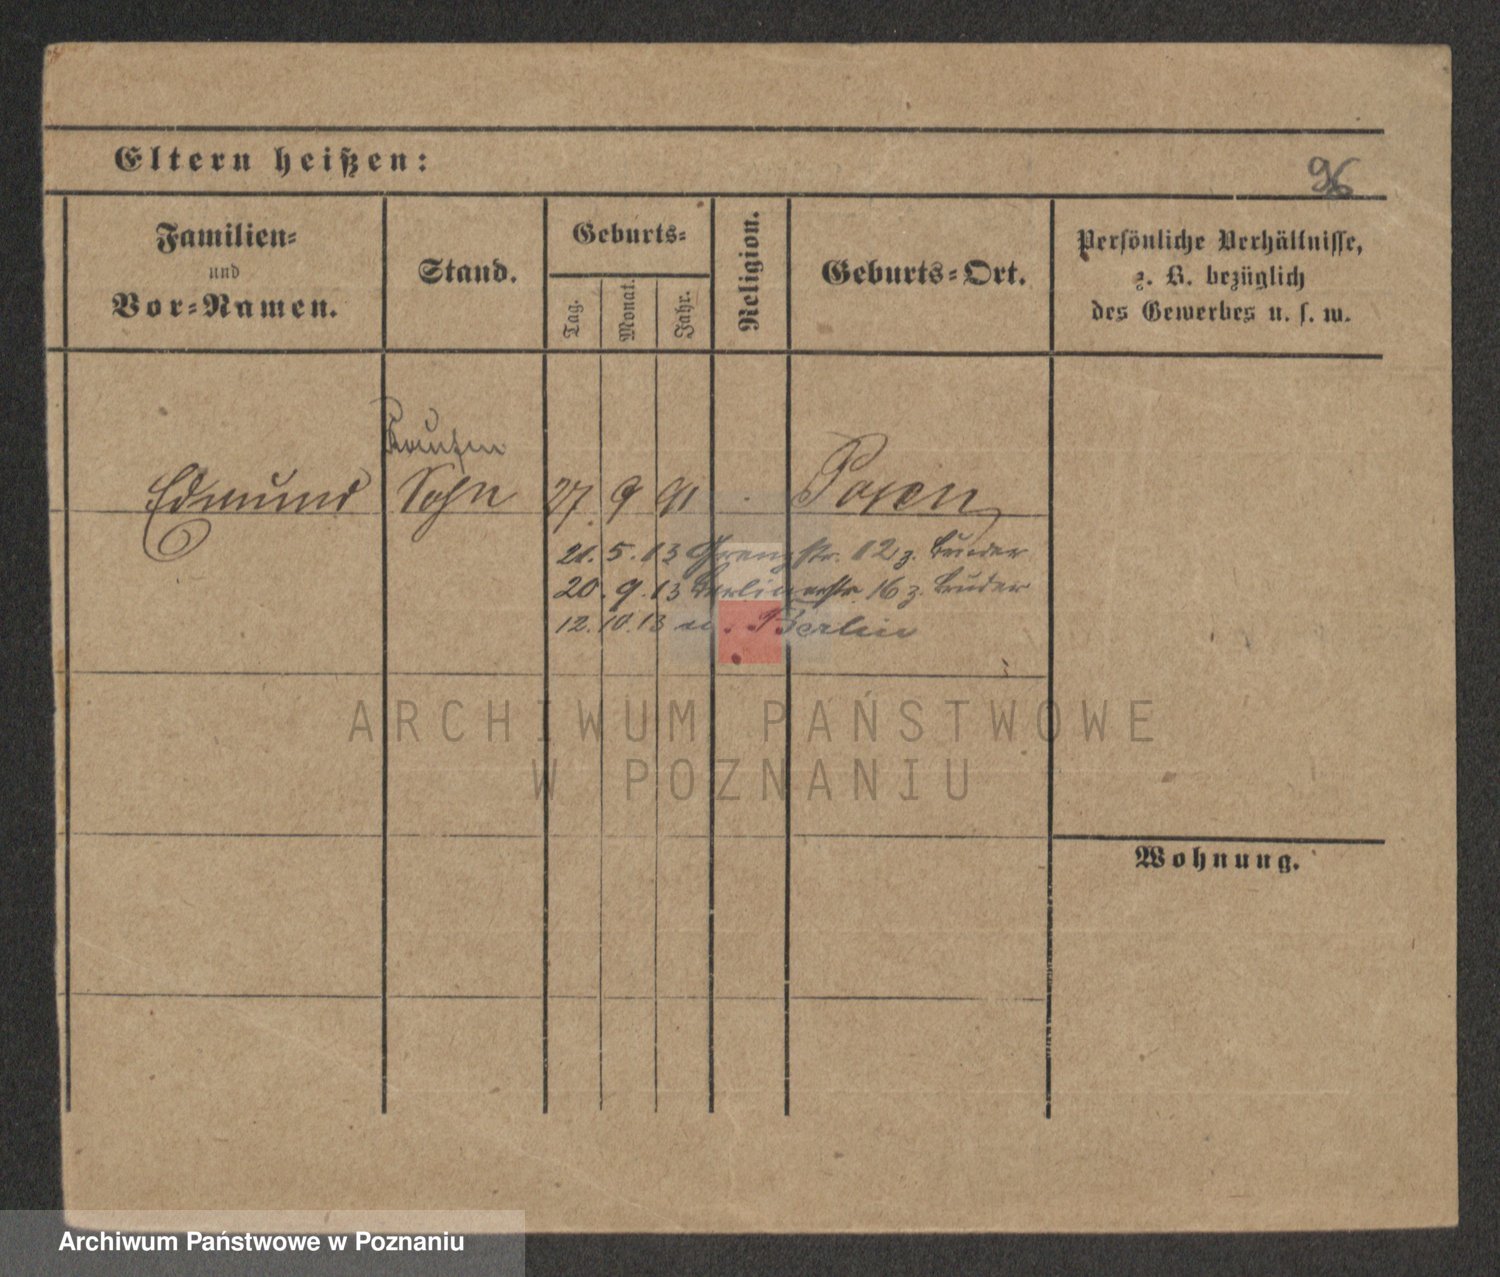 Eltern heißen:
96
Familien-
und
Vor-Namen.
Stand.
Geburts-
Tag.
Monat.
Jahr.
Religion.
Geburts-Ort.
Persönliche Verhältnisse,
z. B. bezüglich
des Gewerbes u. s. w.
Kaufm
Edmund Sohn 27 9 91 Posen
21. 5. 13 Grenzstr. 12 z. Bruder
20. 9. 13 Berlinerstr. 16 z. Bruder
12. 10. 13 n. Berlin
ARCHIWUM PAŃSTWOWE
W POZNANIU
Wohnung.
Archiwum Państwowe w Poznaniu